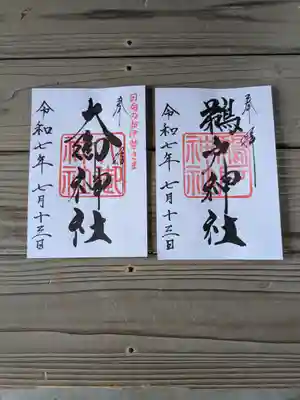 奉拝
鵜戸神社
令和七年 七月十三日
日向のお伊勢さま
奉拝
大御神社
令和七年 七月十三日